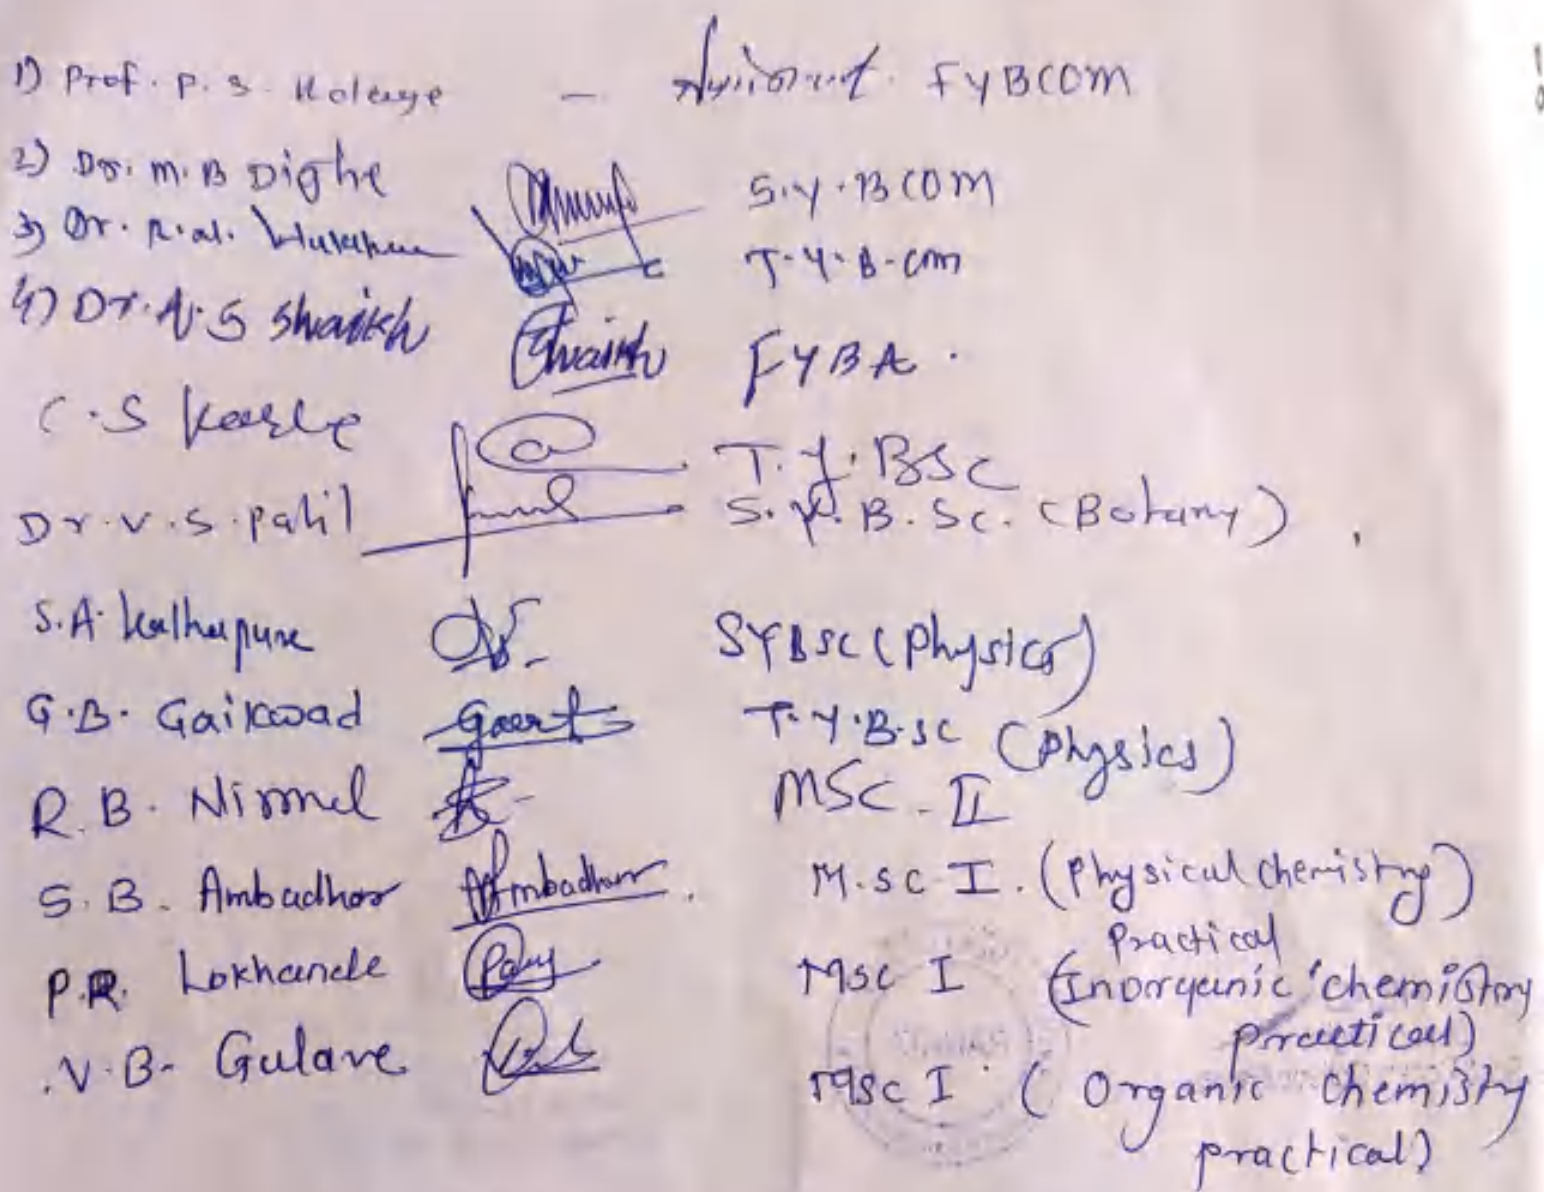 1) Prof. P. S. Kolage — FYBCOM
2) Dr. M. B Dighe S.Y.BCOM
3) Dr. R. T.Y.B.com
4) Dr. A. S Shaikh Shaikh FYBA.
C.S Karle T.Y.BSC
Dr. V. S. Patil S.Y.B.Sc. (Botany)
S.A. Kolhapure SYBSC (Physics)
G.B. Gaikwad T.Y.B.SC (Physics)
R.B. Nirmal MSC - II
S.B. Ambadhar Ambadhar M.SC-I. (Physical chemistry)
Practical
P.R. Lokhande MSC I (Inorganic chemistry
practical)
V.B. Gulave MSC I (Organic chemistry
practical)